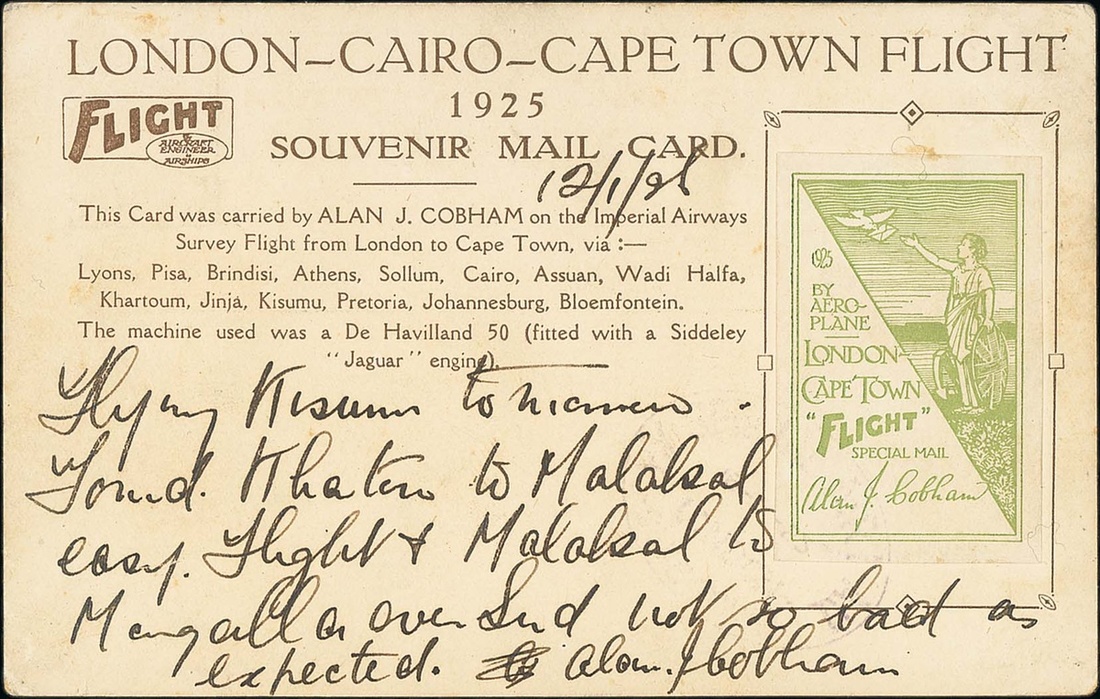 LONDON–CAIRO–CAPE TOWN FLIGHT
1925
FLIGHT
& AIRCRAFT
ENGINEER
& AIRSHIPS
SOUVENIR MAIL CARD.
12/1/26
This Card was carried by ALAN J. COBHAM on the Imperial Airways
Survey Flight from London to Cape Town, via :—
Lyons, Pisa, Brindisi, Athens, Sollum, Cairo, Assuan, Wadi Halfa,
Khartoum, Jinja, Kisumu, Pretoria, Johannesburg, Bloemfontein.
The machine used was a De Havilland 50 (fitted with a Siddeley
"Jaguar" engine).
Flying Kisumu tomorrow.
Found Khatoum to Malakal
easy. Flight & Malakal to
Mongalla over Sud not so bad as
expected. Alan J Cobham
1925
BY
AERO-
PLANE
LONDON-
CAPE TOWN
"FLIGHT"
SPECIAL MAIL
Alan J. Cobham